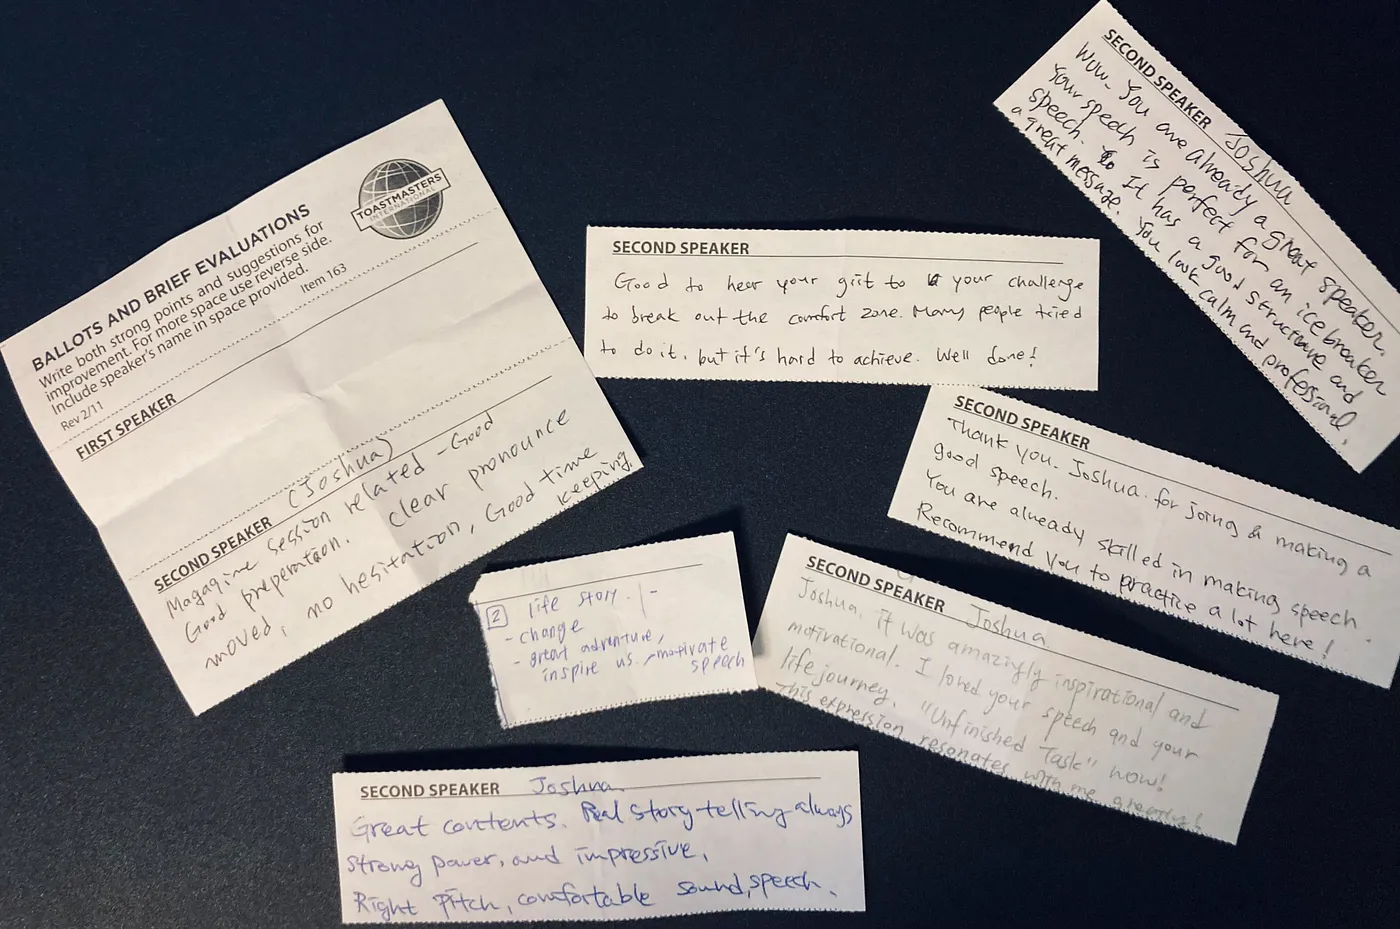 BALLOTS AND BRIEF EVALUATIONS
Write both strong points and suggestions for
improvement. For more space use reverse side.
Include speaker's name in space provided.
Rev 2/11
Item 163
TOASTMASTERS
INTERNATIONAL
FIRST SPEAKER
SECOND SPEAKER (Joshua)
Magagine session related - Good
Good preperation. clear pronounce
moved, no hesitation, Good time
keeping.
SECOND SPEAKER
Good to hear your grit to your challenge
to break out the comfort zone. Many people tried
to do it, but it's hard to achieve. Well done!
SECOND SPEAKER Joshua
Wow. You are already a great speaker.
Your speech is perfect for an icebreaker
speech. It has a good structure and
a great message. You look calm and professional.
SECOND SPEAKER
Thank you. Joshua. for joing & making a
good speech.
You are already skilled in making speech.
Recommend you to practice a lot here!
2 life story.
- change
- great adventure,
inspire us, motivate
speech
SECOND SPEAKER Joshua
Joshua, it was amazingly inspirational and
motivational. I loved your speech and your
life journey. "Unfinished Task" wow!
This expression resonates with me greatly!
SECOND SPEAKER Joshua
Great contents. Real story-telling always
strong power, and impressive,
Right pitch, comfortable sound, speech.